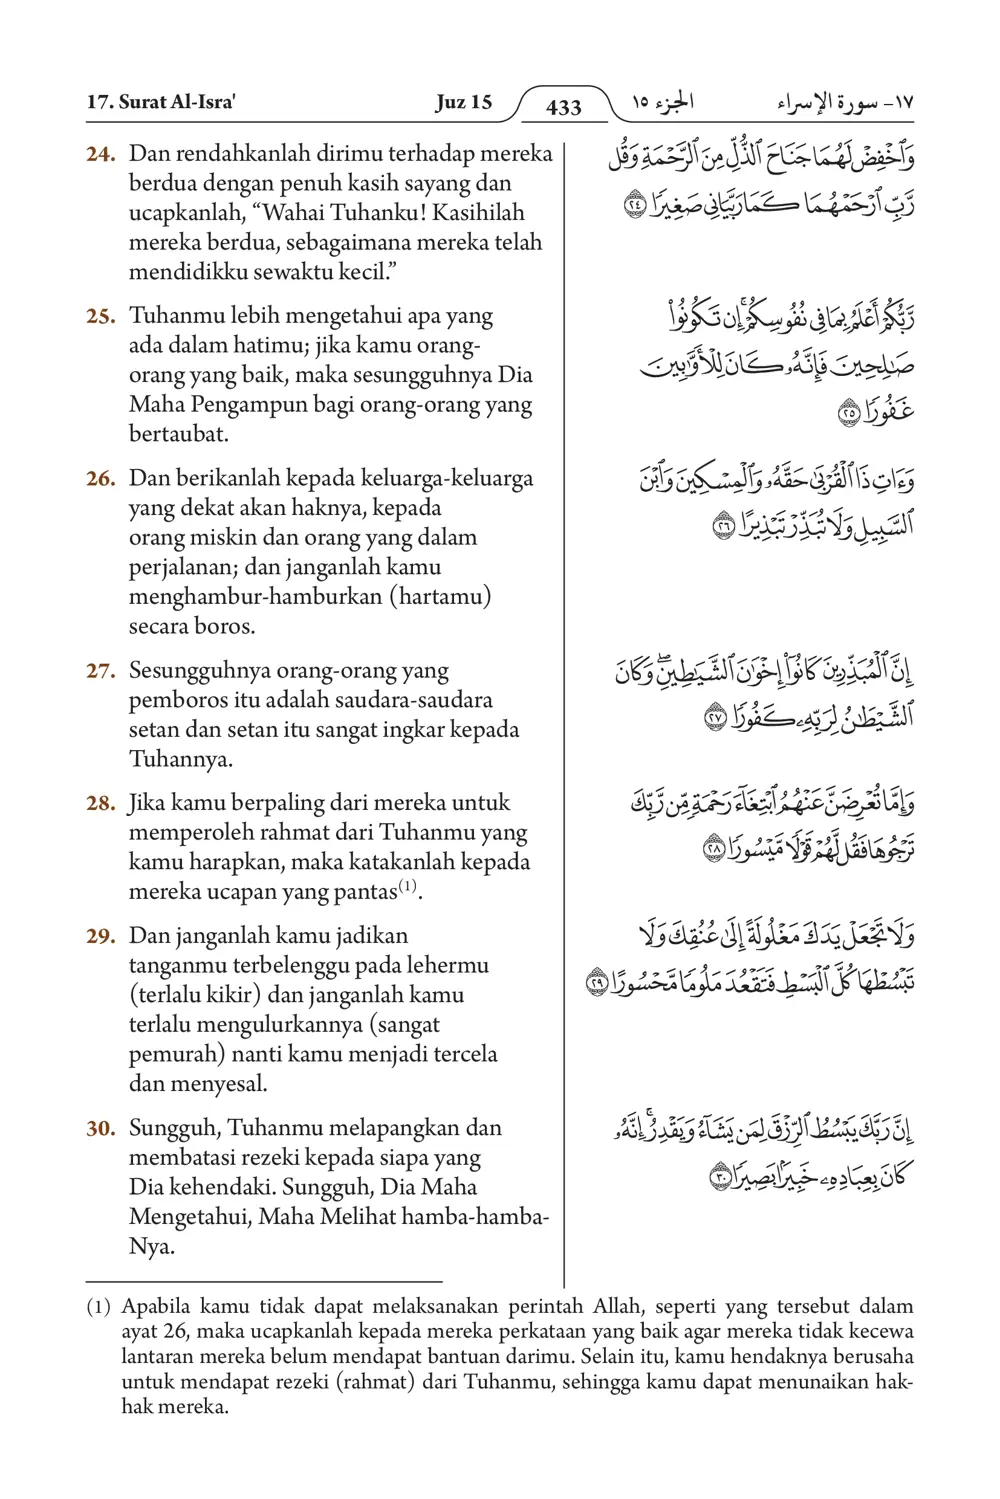 17. Surat Al-Isra' Juz 15 433 الجزء ١٥ ١٧- سورة الإسراء
24. Dan rendahkanlah dirimu terhadap mereka
berdua dengan penuh kasih sayang dan
ucapkanlah, “Wahai Tuhanku! Kasihilah
mereka berdua, sebagaimana mereka telah
mendidikku sewaktu kecil.”
25. Tuhanmu lebih mengetahui apa yang
ada dalam hatimu; jika kamu orang-
orang yang baik, maka sesungguhnya Dia
Maha Pengampun bagi orang-orang yang
bertaubat.
26. Dan berikanlah kepada keluarga-keluarga
yang dekat akan haknya, kepada
orang miskin dan orang yang dalam
perjalanan; dan janganlah kamu
menghambur-hamburkan (hartamu)
secara boros.
27. Sesungguhnya orang-orang yang
pemboros itu adalah saudara-saudara
setan dan setan itu sangat ingkar kepada
Tuhannya.
28. Jika kamu berpaling dari mereka untuk
memperoleh rahmat dari Tuhanmu yang
kamu harapkan, maka katakanlah kepada
mereka ucapan yang pantas(1).
29. Dan janganlah kamu jadikan
tanganmu terbelenggu pada lehermu
(terlalu kikir) dan janganlah kamu
terlalu mengulurkannya (sangat
pemurah) nanti kamu menjadi tercela
dan menyesal.
30. Sungguh, Tuhanmu melapangkan dan
membatasi rezeki kepada siapa yang
Dia kehendaki. Sungguh, Dia Maha
Mengetahui, Maha Melihat hamba-hamba-
Nya.
وَٱخْفِضْ لَهُمَا جَنَاحَ ٱلذُّلِّ مِنَ ٱلرَّحْمَةِ وَقُل
رَّبِّ ٱرْحَمْهُمَا كَمَا رَبَّيَانِى صَغِيرًا ٢٤
رَّبُّكُمْ أَعْلَمُ بِمَا فِى نُفُوسِكُمْ ۚ إِن تَكُونُوا۟
صَـٰلِحِينَ فَإِنَّهُۥ كَانَ لِلْأَوَّٰبِينَ
غَفُورًا ٢٥
وَءَاتِ ذَا ٱلْقُرْبَىٰ حَقَّهُۥ وَٱلْمِسْكِينَ وَٱبْنَ
ٱلسَّبِيلِ وَلَا تُبَذِّرْ تَبْذِيرًا ٢٦
إِنَّ ٱلْمُبَذِّرِينَ كَانُوٓا۟ إِخْوَٰنَ ٱلشَّيَـٰطِينِ ۖ وَكَانَ
ٱلشَّيْطَـٰنُ لِرَبِّهِۦ كَفُورًا ٢٧
وَإِمَّا تُعْرِضَنَّ عَنْهُمُ ٱبْتِغَآءَ رَحْمَةٍ مِّن رَّبِّكَ
تَرْجُوهَا فَقُل لَّهُمْ قَوْلًا مَّيْسُورًا ٢٨
وَلَا تَجْعَلْ يَدَكَ مَغْلُولَةً إِلَىٰ عُنُقِكَ وَلَا
تَبْسُطْهَا كُلَّ ٱلْبَسْطِ فَتَقْعُدَ مَلُومًا مَّحْسُورًا ٢٩
إِنَّ رَبَّكَ يَبْسُطُ ٱلرِّزْقَ لِمَن يَشَآءُ وَيَقْدِرُ ۚ إِنَّهُۥ
كَانَ بِعِبَادِهِۦ خَبِيرًۢا بَصِيرًا ٣٠
(1) Apabila kamu tidak dapat melaksanakan perintah Allah, seperti yang tersebut dalam
ayat 26, maka ucapkanlah kepada mereka perkataan yang baik agar mereka tidak kecewa
lantaran mereka belum mendapat bantuan darimu. Selain itu, kamu hendaknya berusaha
untuk mendapat rezeki (rahmat) dari Tuhanmu, sehingga kamu dapat menunaikan hak-
hak mereka.